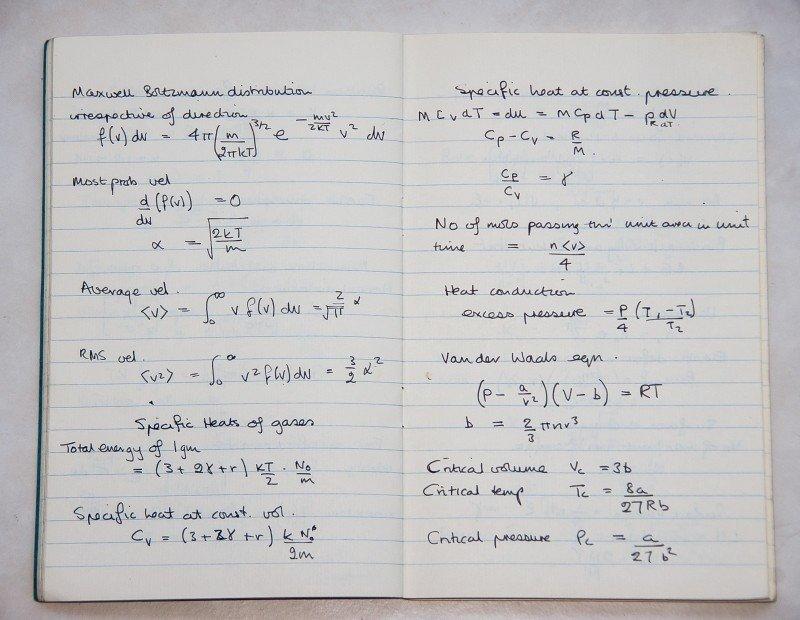 Maxwell Boltzmann distribution
irrespective of direction
f(v) dv = 4π (m/2πkT)^3/2 e^-mv²/2kT v² dv
Most prob vel
d/dv (f(v)) = 0
α = √(2kT/m)
Average vel.
<v> = ∫₀^∞ v f(v) dv = 2/√π α
RMS vel.
<v²> = ∫₀^∞ v² f(v) dv = 3/2 α²
Specific Heats of gases
Total energy of 1gm
= (3 + 2γ + r) kT/2 · N₀/m
Specific heat at const. vol.
Cv = (3 + 2γ + r) k N₀/2m
Specific heat at const. pressure.
M Cv dT = du = M Cp dT - p dV
Cp - Cv = R/M.
Cp/Cv = γ
No of mols passing thro' unit area in unit
time = n<v>/4
Heat conduction
excess pressure = P/4 (T₁-T₂)/T₂
Van der Waals eqn.
(P - a/v²)(V - b) = RT
b = 2/3 πnr³
Critical volume Vc = 3b
Critical temp Tc = 8a/27Rb
Critical pressure Pc = a/27b²